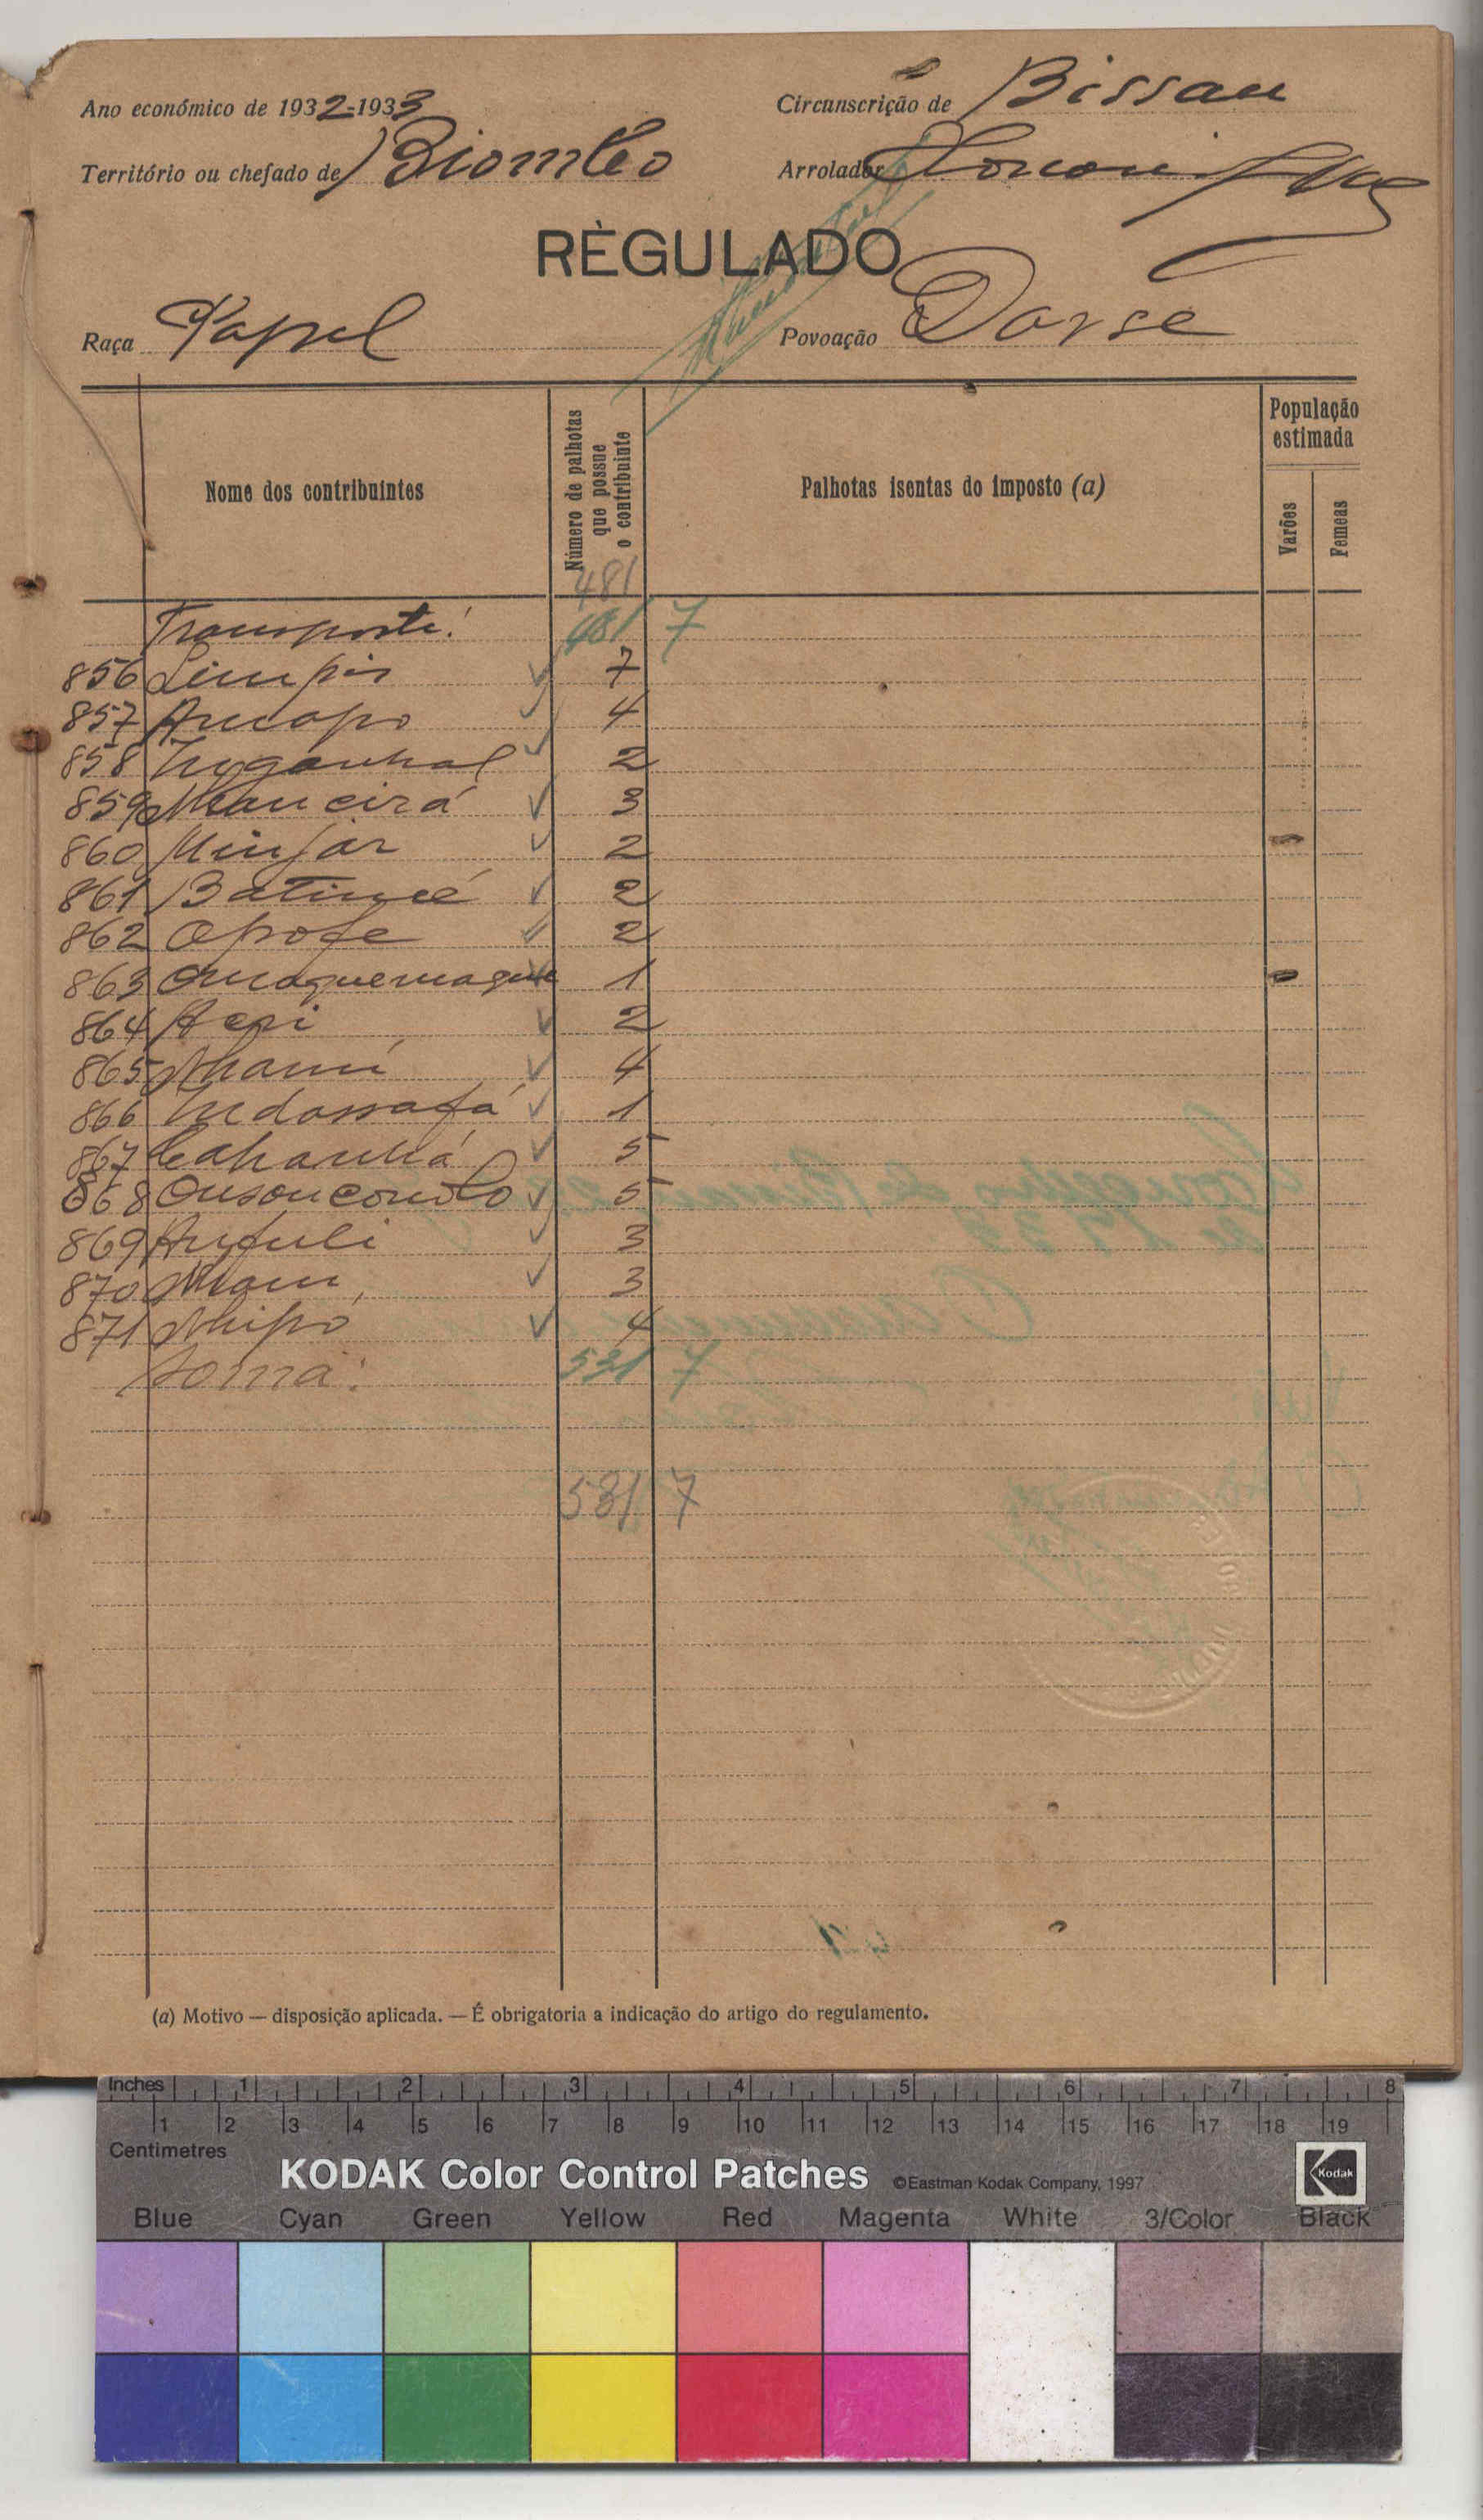 Ano económico de 1932-1933
Circunscrição de Bissau
Território ou chefado de Biombo
Arrolador
RÈGULADO
Raça Papel
Povoação Dorse
Nome dos contribuintes
Número de palhotas que possue o contribuinte
Palhotas isentas do imposto (a)
População estimada
Varões
Femeas
481
Transporte: 481 7
856 Limpis 7
857 Ancopo 4
858 Inganhal 2
859 Mancirá 3
860 Minjar 2
861 2
862 Opofe 2
863 Omoquemaque 1
864 2
865 4
866 Indossafá 1
867 Cahanhá 5
868 5
869 Anfuli 3
870 3
871 Nhipó 4
Soma: 531 7
531 7
(a) Motivo — disposição aplicada. — É obrigatoria a indicação do artigo do regulamento.
Inches 1 2 3 4 5 6 7 8
1 2 3 4 5 6 7 8 9 10 11 12 13 14 15 16 17 18 19
Centimetres
KODAK Color Control Patches ©Eastman Kodak Company, 1997 Kodak
Blue Cyan Green Yellow Red Magenta White 3/Color Black